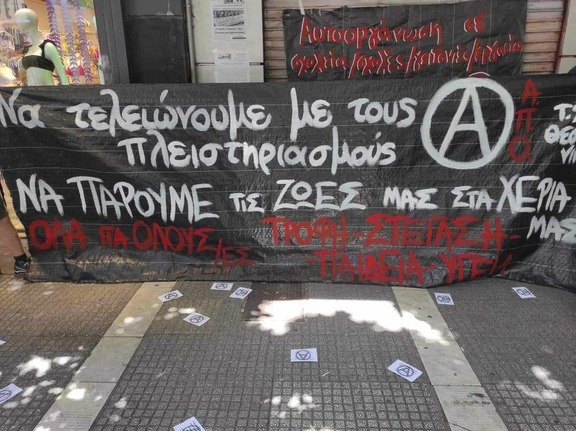 Αυτοοργάνωση σε
σχολεία/σχολές/γειτονιές/εργασία
Να τελειώνουμε με τους
πλειστηριασμούς
Α.
Π.
Ο.
Τ.
ΘΕΣ
ΝΑ ΠΑΡΟΥΜΕ τις ΖΩΕΣ μας στα ΧΕΡΙΑ
μας
ΟΛΑ για ΟΛΟΥΣ/ΕΣ
ΤΡΟΦΗ-ΣΤΕΓΑΣΗ-
ΠΑΙΔΕΙΑ-ΥΓΕΙΑ